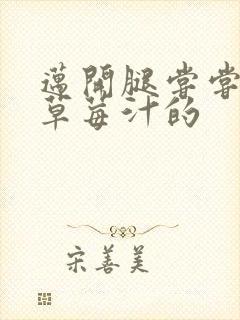 邁開腿嘗嘗
草莓汁的
宋善美